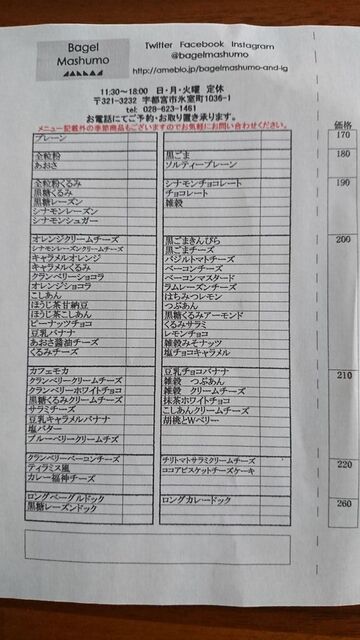 Bagel
Mashumo
Twitter Facebook Instagram
@bagelmashumo
http://ameblo.jp/bagelmashumo-and-lg
11:30～18:00 日・月・火曜 定休
〒321-3232 宇都宮市氷室町1036-1
tel: 028-623-1461
お電話にてご予約・お取り置き承ります。
メニュー記載外の季節商品もございますのでお気軽にお問い合わせください。
価格
プレーン 170
全粒粉 黒ごま 180
あおさ ソルティープレーン
全粒粉くるみ シナモンチョコレート 190
黒糖くるみ チョコレート
黒糖レーズン 雑穀
シナモンレーズン
シナモンシュガー
オレンジクリームチーズ 黒ごまきんぴら 200
シナモンレーズンクリームチーズ 黒ごまチーズ
キャラメルオレンジ バジルトマトチーズ
キャラメルくるみ ベーコンチーズ
クランベリーショコラ ベーコンマスタード
オレンジショコラ ラムレーズンチーズ
こしあん はちみつレモン
ほうじ茶甘納豆 つぶあん
ほうじ茶こしあん 黒糖くるみアーモンド
ピーナッツチョコ くるみサラミ
豆乳バナナ レモンチョコ
あおさ醤油チーズ 雑穀みそナッツ
くるみチーズ 塩チョコキャラメル
カフェモカ 豆乳チョコバナナ 210
クランベリークリームチーズ 雑穀 つぶあん
クランベリーホワイトチョコ 雑穀 クリームチーズ
黒糖くるみクリームチーズ 抹茶ホワイトチョコ
サラミチーズ こしあんクリームチーズ
豆乳キャラメルバナナ 胡桃とWベリー
塩バター
ブルーベリークリームチーズ
クランベリーベーコンチーズ チリトマトサラミクリームチーズ 220
ティラミス風 ココアビスケットチーズケーキ
カレー福神チーズ
ロングベーグルドック ロングカレードック 260
黒糖レーズンドック